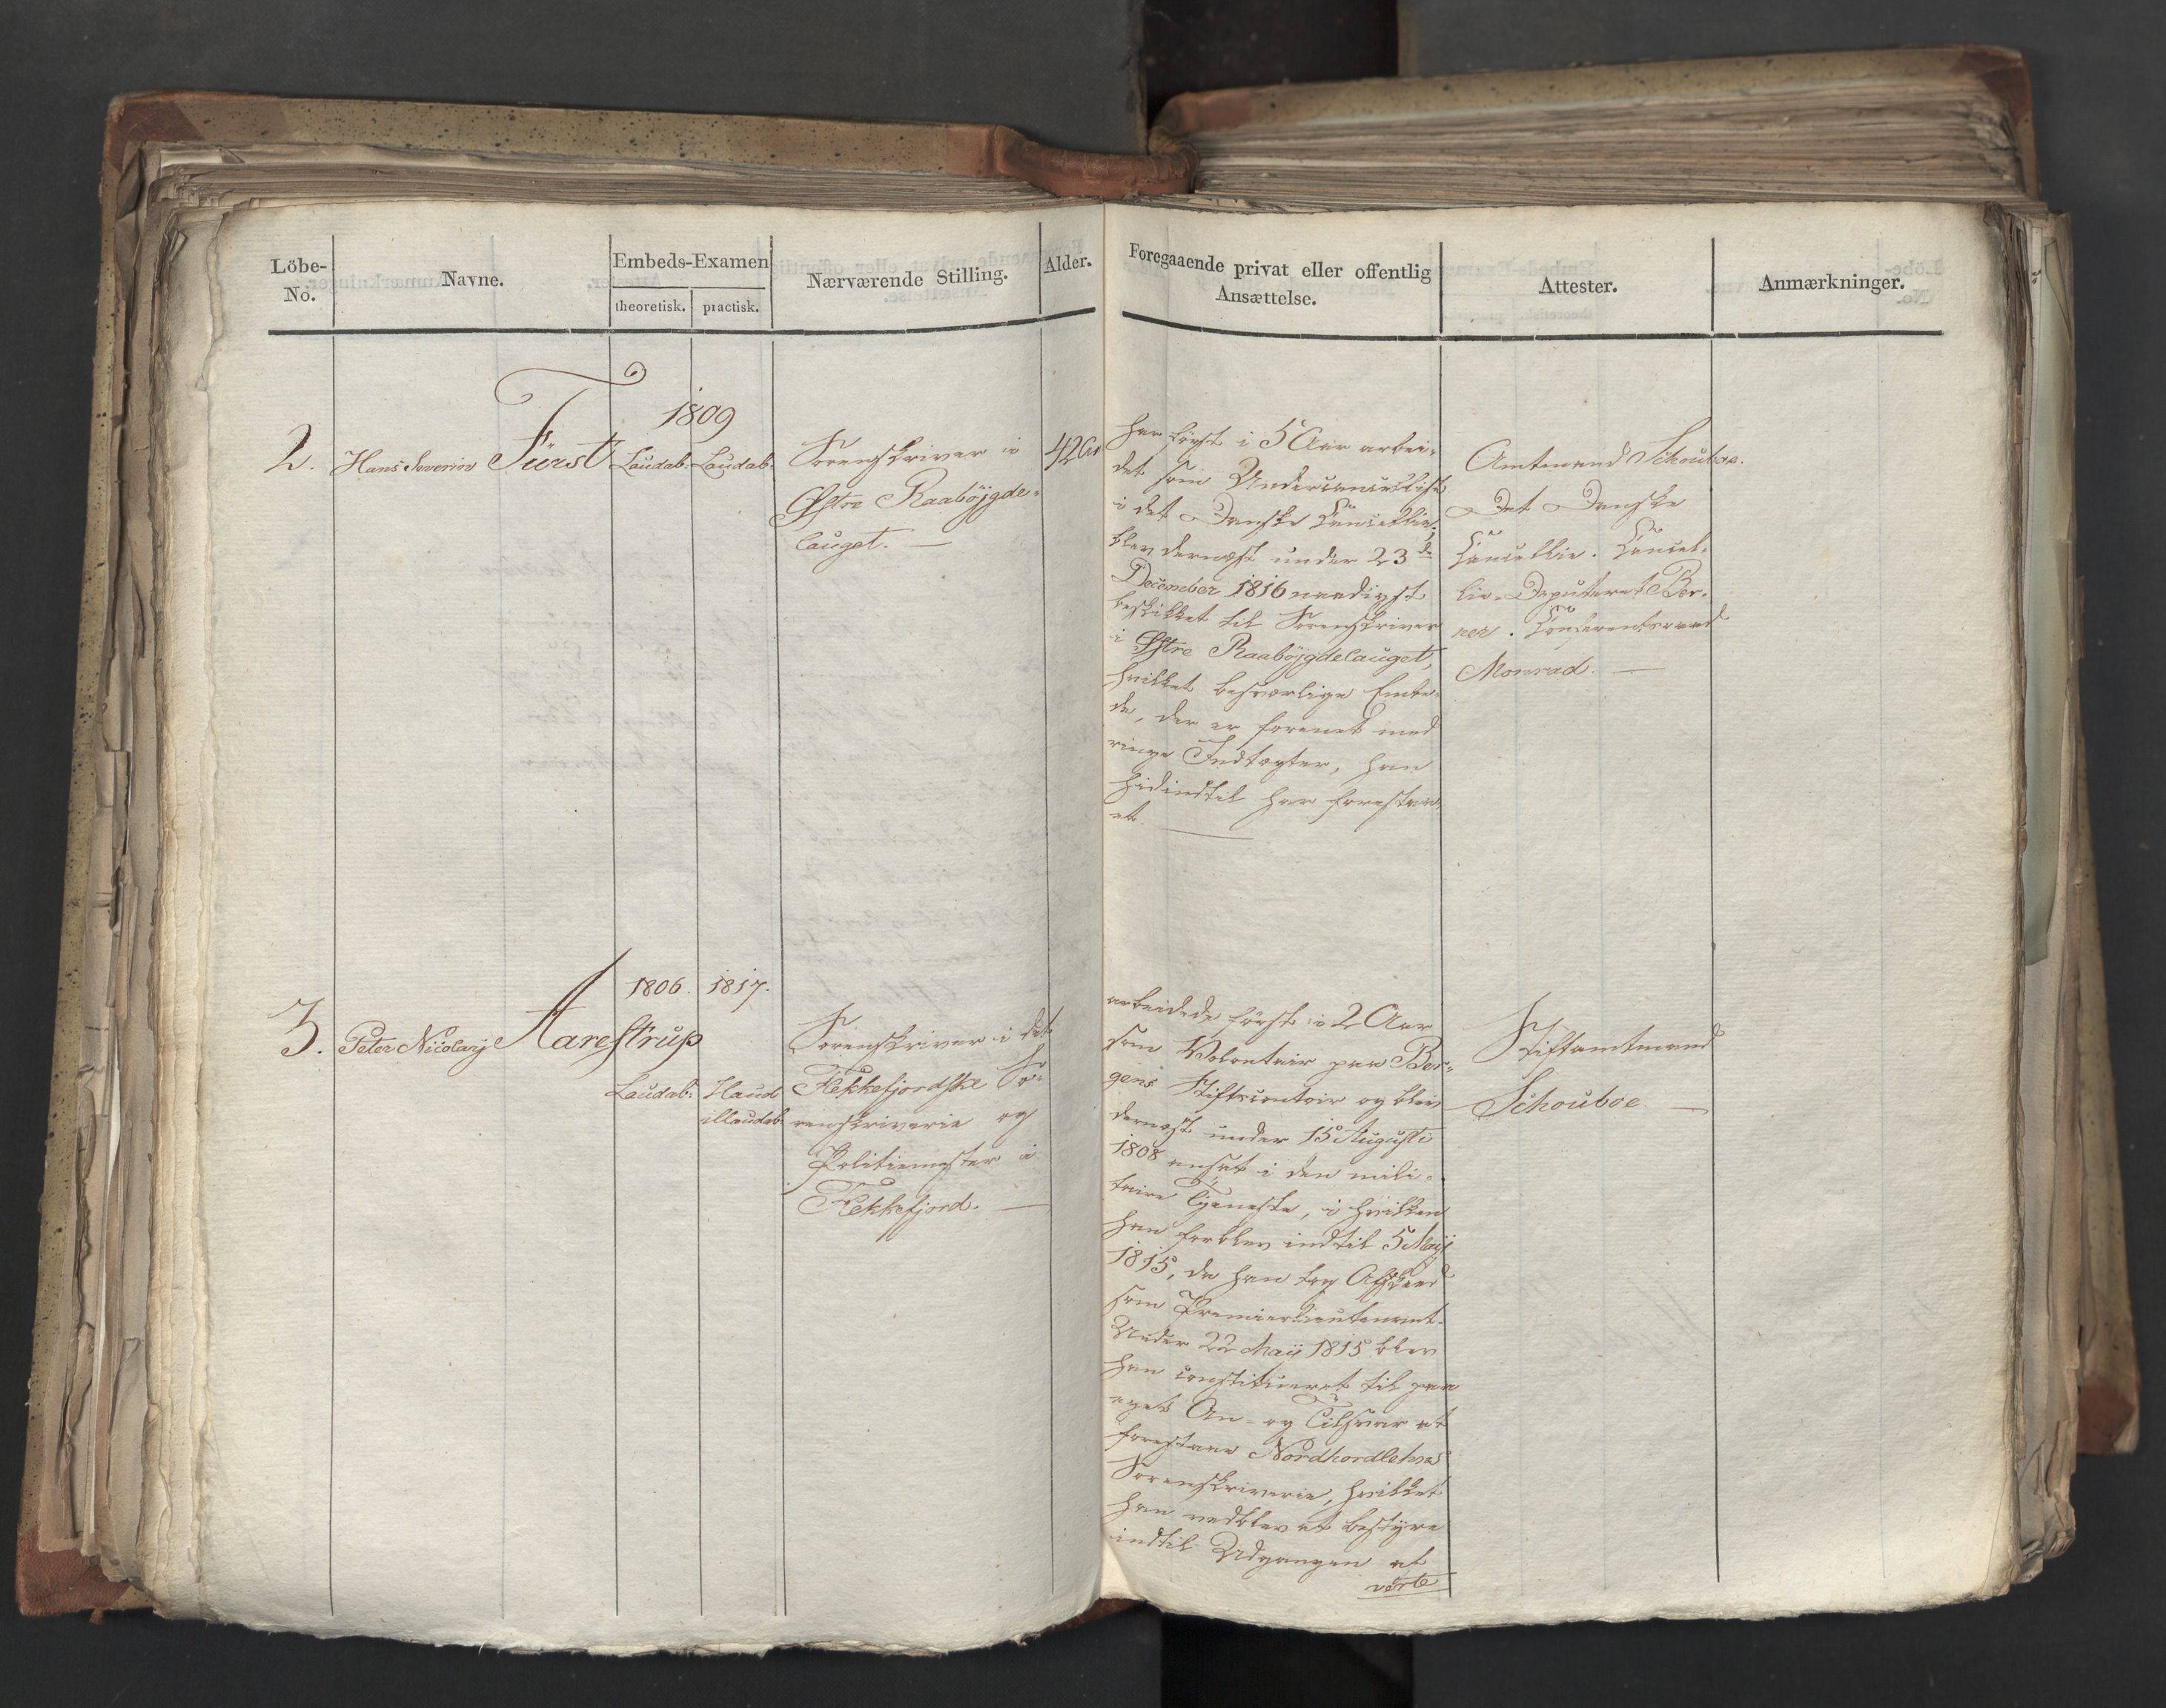 Löbe-
No.
Navne.
Embeds-Examen
theoretisk. practisk.
Nærværende Stilling.
Alder.
Foregaaende privat eller offentlig
Ansættelse.
Attester.
Anmærkninger.
2. Hans Severin Fürst
1809
Laudab. Laudab.
Sorenskriver i
Østre Raaböjgde-
lauget.
42 Aar
har først i 5 Aar arbei-
det som Undercancellist
i det Danske Cancellie,
blev dernæst under 23de
December 1816 naadigst
beskikket til Sorenskriver
i Østre Raabøjgdelauget,
hvilket besværlige Embe-
de, der er forenet med
ringe Indtægter, han
hidindtil har forestaa-
et.
Amtmand Schouboe.
Det Danske
Cancellie. Cancel-
lie-Deputeret Ber-
ner. Conferentsraad
Monrad.
3. Peter Nicolay Aarestrup
1806. 1817.
Laudab. Haud
illaudab.
Sorenskriver i det
Flekkefjordske So-
renskriverie og
Politiemester i
Flekkefjord.
arbeidede først i 2 Aar
som Volontair paa Ber-
gens Stiftscontoir og blev
dernæst under 15 Augusti
1808 ansat i den mili-
taire Tjeneste, i hvilken
han forblev indtil 5 Maij
1815, da han tog Afskeed
som Premierlieutenant.
Under 22 Maij 1815 blev
han constitueret til paa
eget An- og Tilsvar at
forestaae Nordhordlehns
Sorenskriverie, hvilket
han vedblev at bestyre
indtil Udgangen af
verte
Stiftamtmand
Schouboe.